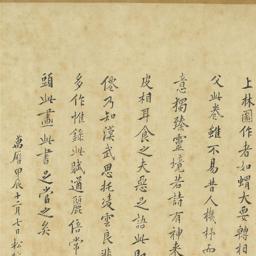 上林圖作者如蝟大要轉相
父此卷雖不易昔人機杼而
意獨臻靈境若詩有神来
皮相耳食之夫惡之語此即
僊乃知漢武思托凌雲良非
多作惟錄此賦遒麗倍常
頭此畫此書足當之矣
萬曆甲辰十一月七日松